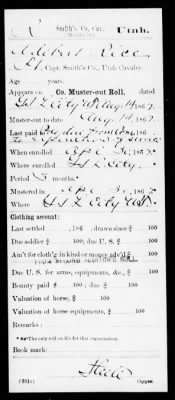 R | Smith's Co. Cav. | Utah.
Adelbert Rice
Capt. Smith's Co., Utah Cavalry.
Age years.
Appears on Co. Muster-out Roll, dated
G S L City U.T. Aug 14, 1862.
Muster-out to date Aug 14, 1862.
Last paid to
When enrolled Apl 30, 1862.
Where enrolled G S L City
Period 3 months.
Mustered in Apl 30, 1862.
Where G S L City U.T.
Clothing account:
Last settled , 186 ; drawn since $ 100
Due soldier $ 100; due U. S. $ 100
Am't for cloth'g in kind or money adv'd $ 100
FROM SECOND AUDITOR'S ROLL
Due U. S. for arms, equipments, &c., $ 100
Bounty paid $ 100; due $ 100
Valuation of horse, $ 100
Valuation of horse equipments, $ 100
Remarks:
*The only roll on file for this organization.
Book mark:
(361c) Copyist.